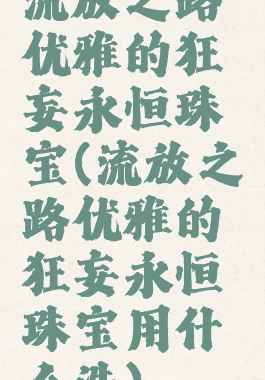 流放之路
优雅的狂
妄永恒珠
宝(流放之
路优雅的
狂妄永恒
珠宝用什
么洗)